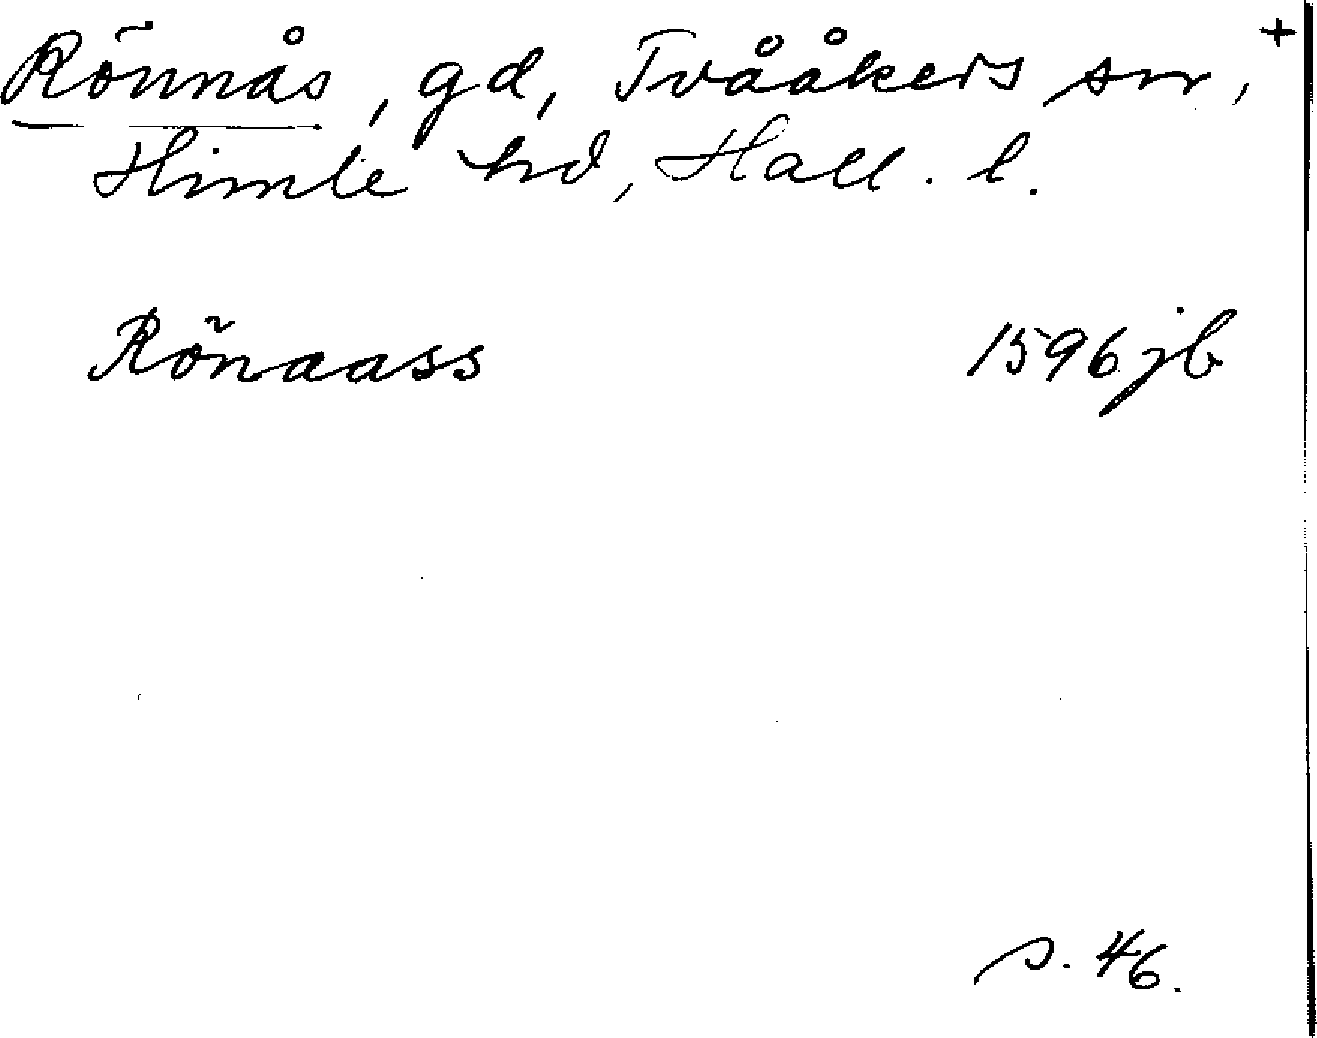 Rönnås, gd, Tvååkers sn, +
Himle hd, Hall. l.
Rönaass 1596 jb
s. 46.